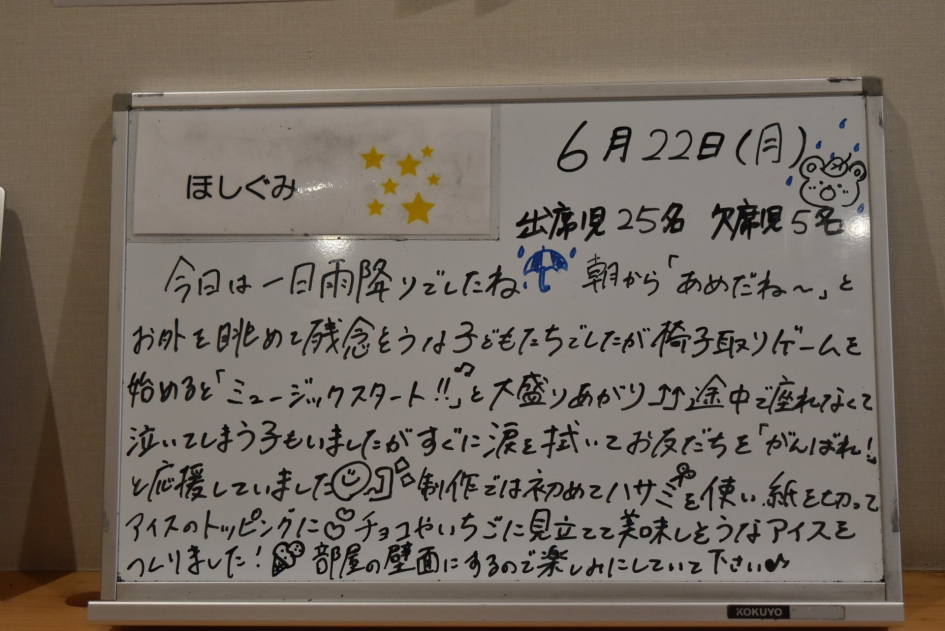 ほしぐみ
6月22日(月)
出席児25名 欠席児5名
今日は一日雨降りでしたね 朝から「あめだね~」と
お外を眺めて残念そうな子どもたちでしたが椅子取りゲームを
始めると「ミュージックスタート!!♫」と大盛りあがり⇈途中で座れなくて
泣いてしまう子もいましたがすぐに涙を拭いてお友だちを「がんばれ!」
と応援していました 制作では初めてハサミを使い、紙を切って
アイスのトッピングに チョコやいちごに見立てて美味しそうなアイスを
つくりました! 部屋の壁面にするので楽しみにしていて下さい♪
KOKUYO